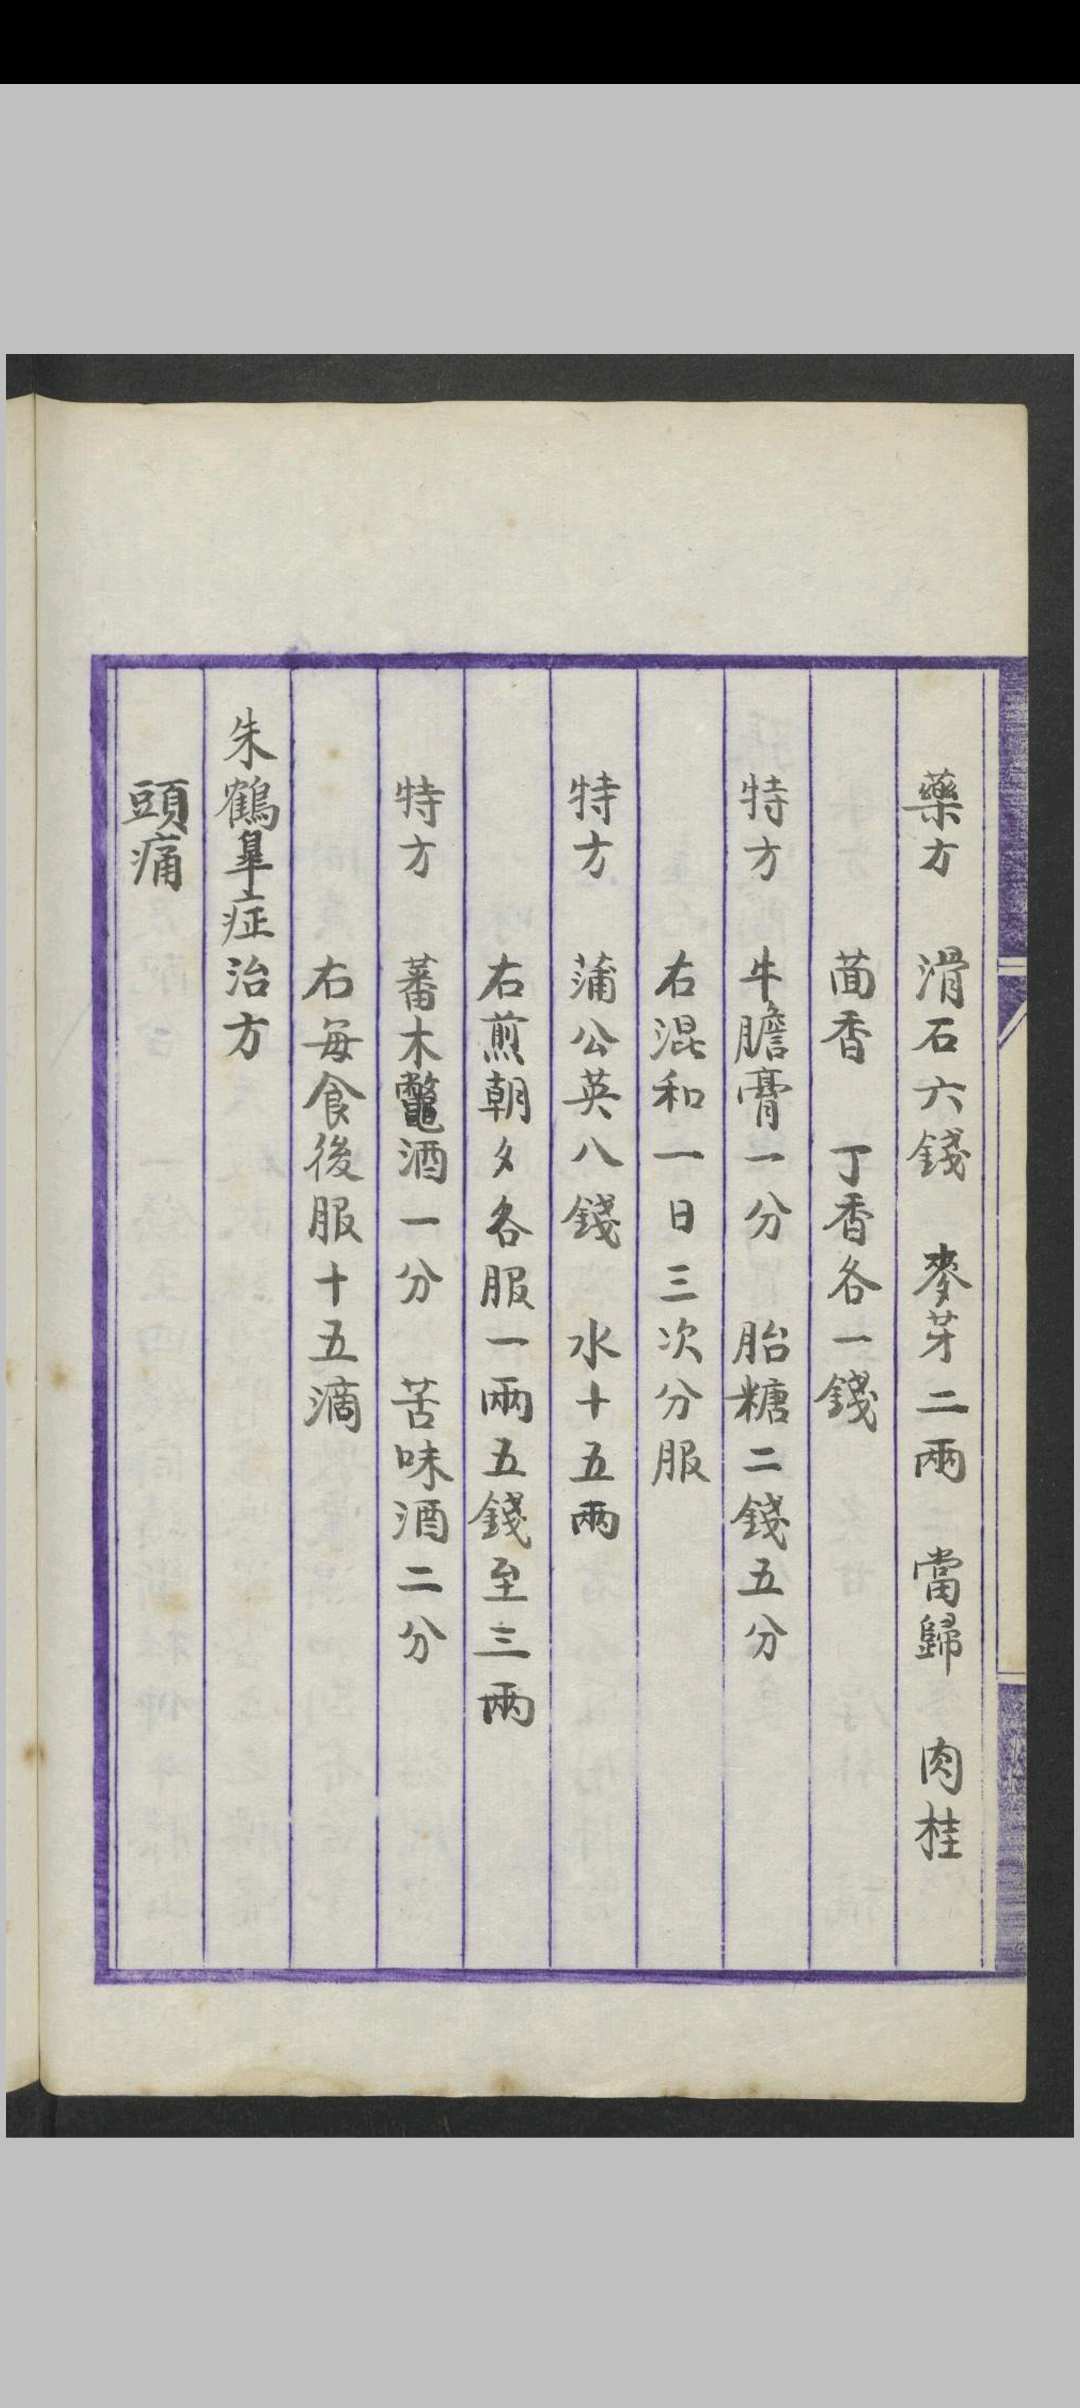 藥方 滑石六錢 麥芽二兩 當歸 肉桂
茴香 丁香各一錢
特方 牛膽膏一分 胎糖二錢五分
右混和一日三次分服
特方 蒲公英八錢 水十五兩
右煎朝夕各服一兩五錢至三兩
特方 蕃木鼈酒一分 苦味酒二分
右每食後服十五滴
朱鶴皐症治方
頭痛